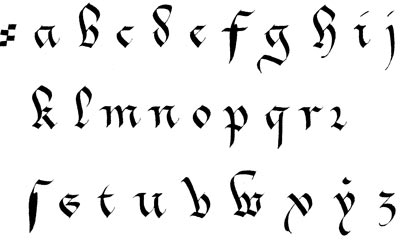 a b c d e f g h i j
k l m n o p q r ꝛ
ſ s t u v w x ẏ z